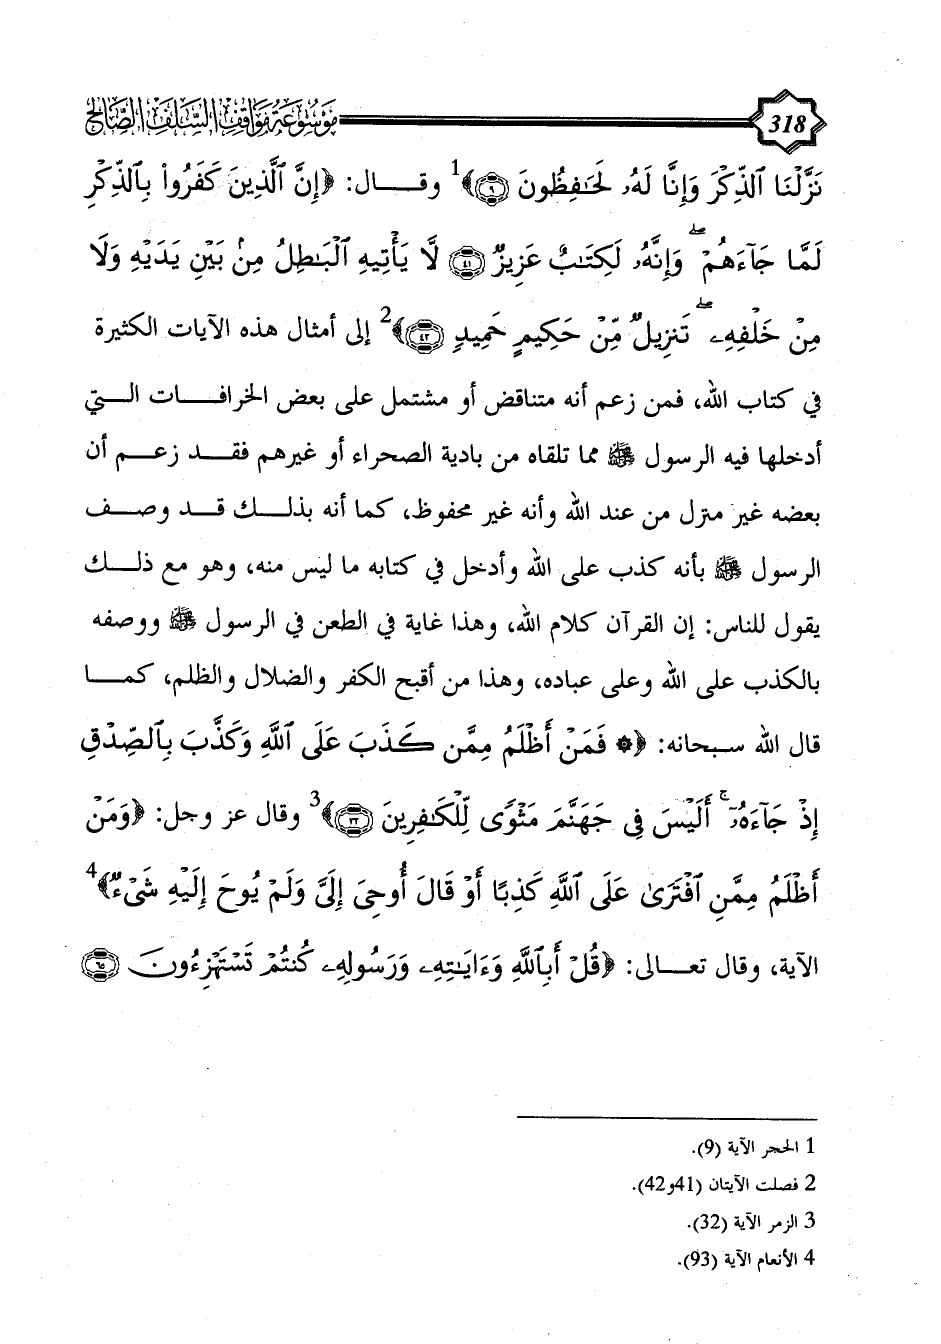 318 موسوعة مواقف السلف الصالح
نَزَّلْنَا الذِّكْرَ وَإِنَّا لَهُۥ لَحَٰفِظُونَ ۝٩﴾1 وقـــال: ﴿إِنَّ الَّذِينَ كَفَرُوا۟ بِالذِّكْرِ
لَمَّا جَآءَهُمْ ۖ وَإِنَّهُۥ لَكِتَٰبٌ عَزِيزٌ ۝٤١ لَّا يَأْتِيهِ الْبَٰطِلُ مِنۢ بَيْنِ يَدَيْهِ وَلَا
مِنْ خَلْفِهِۦ ۖ تَنزِيلٌ مِّنْ حَكِيمٍ حَمِيدٍ ۝٤٢﴾2 إلى أمثال هذه الآيات الكثيرة
في كتاب الله، فمن زعم أنه متناقض أو مشتمل على بعض الخرافـــات الـــتي
أدخلها فيه الرسول ﷺ مما تلقاه من بادية الصحراء أو غيرهم فقـــد زعـــم أن
بعضه غير منزل من عند الله وأنه غير محفوظ، كما أنه بذلـــك قـــد وصـــف
الرسول ﷺ بأنه كذب على الله وأدخل في كتابه ما ليس منه، وهو مع ذلـــك
يقول للناس: إن القرآن كلام الله، وهذا غاية في الطعن في الرسول ﷺ ووصفه
بالكذب على الله وعلى عباده، وهذا من أقبح الكفر والضلال والظلم، كمـــا
قال الله سبحانه: ﴿۞ فَمَنْ أَظْلَمُ مِمَّن كَذَبَ عَلَى ٱللَّهِ وَكَذَّبَ بِٱلصِّدْقِ
إِذْ جَآءَهُۥٓ ۚ أَلَيْسَ فِى جَهَنَّمَ مَثْوًى لِّلْكَٰفِرِينَ ۝٣٢﴾3 وقال عز وجل: ﴿وَمَنْ
أَظْلَمُ مِمَّنِ ٱفْتَرَىٰ عَلَى ٱللَّهِ كَذِبًا أَوْ قَالَ أُوحِىَ إِلَىَّ وَلَمْ يُوحَ إِلَيْهِ شَىْءٌ﴾4
الآية، وقال تعـــالى: ﴿قُلْ أَبِٱللَّهِ وَءَايَٰتِهِۦ وَرَسُولِهِۦ كُنتُمْ تَسْتَهْزِءُونَ ۝٦٥
1 الحجر الآية (9).
2 فصلت الآيتان (41و42).
3 الزمر الآية (32).
4 الأنعام الآية (93).